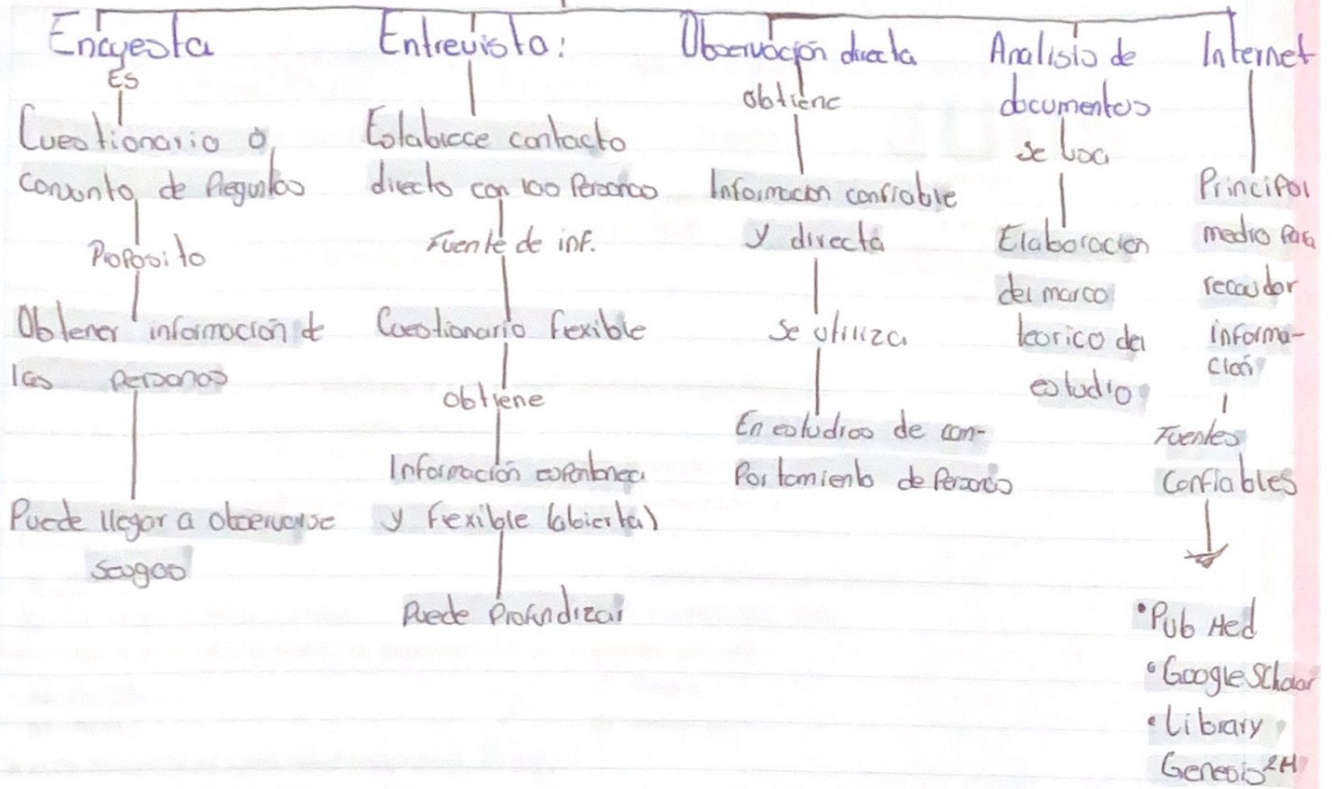 Encuesta
Es
Cuestionario o
conjunto de Preguntas
Proposito
Obtener información de
las personas
Puede llegar a observarse
sesgos
Entrevista:
Establece contacto
directo con las Personas
Fuente de inf.
Cuestionario flexible
obtiene
Información espontanea
y flexible (abierta)
Puede Profundizar
Observación directa
obtiene
Informacion confiable
y directa
se utiliza
En estudios de com-
Portamiento de Personas
Analisis de
documentos
se usa
Elaboracion
del marco
teorico del
estudio
Internet
Principal
medio para
recaudar
informa-
ción
Fuentes
Confiables
•Pub Med
•Google Scholar
•Library
Genesis 2H